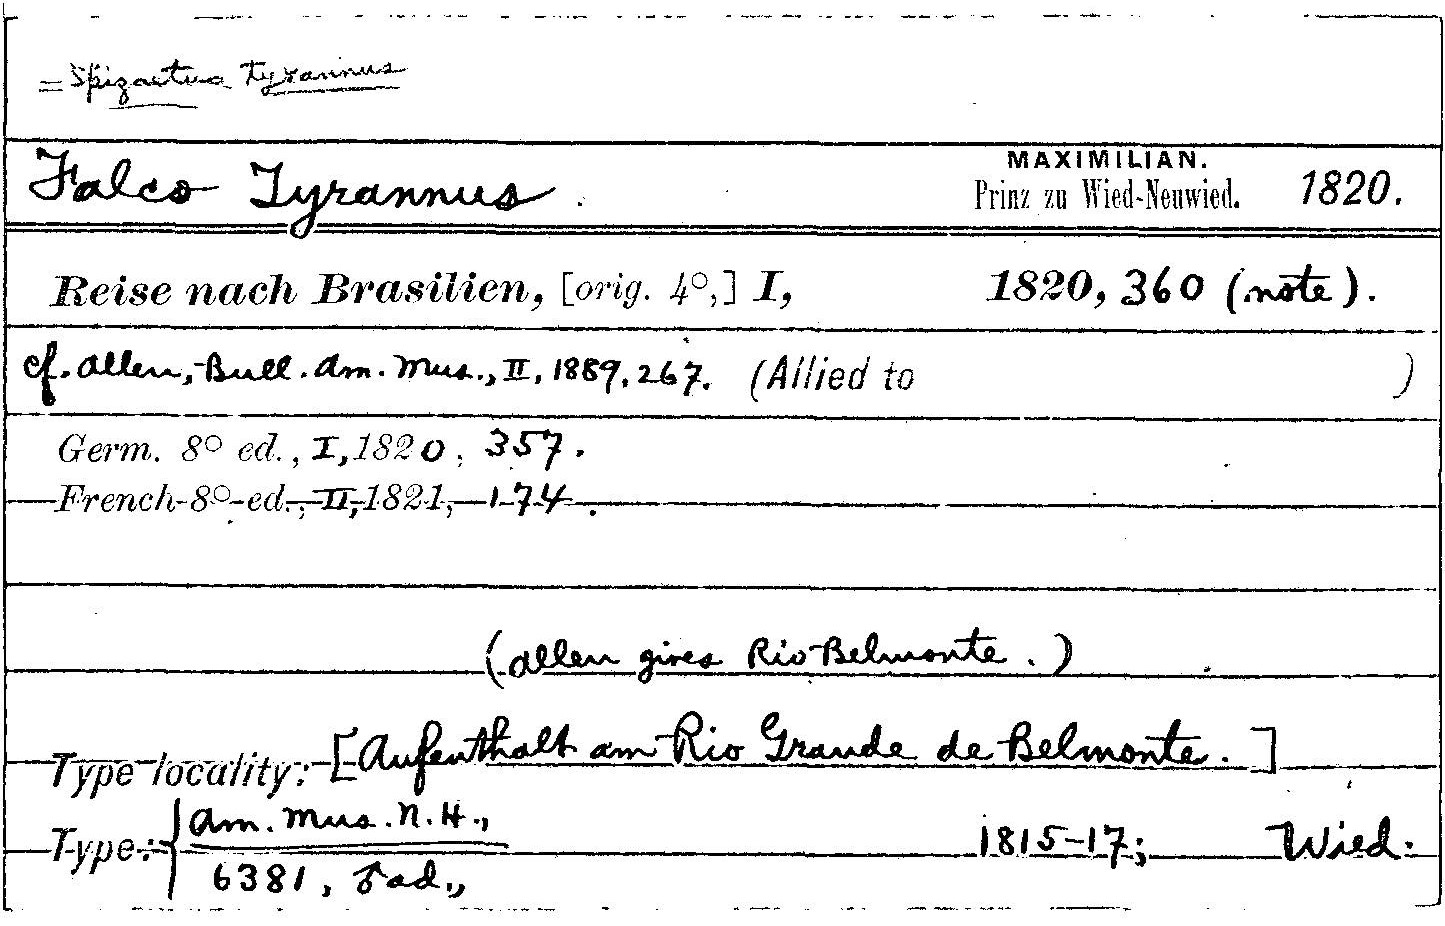 = Spizaetus tyrannus
Falco Tyrannus. MAXIMILIAN. Prinz zu Wied-Neuwied. 1820.
Reise nach Brasilien, [orig. 4°,] I, 1820, 360 (note).
cf. Allen, Bull. Am. Mus., II, 1889, 267. (Allied to )
Germ. 8° ed., I, 1820, 357.
French 8° ed., II, 1821, 174.
(Allen gives Rio Belmonte.)
Type locality: [Aufenthalt am Rio Grande de Belmonte.]
Type: { Am. Mus. N.H., 1815-17; Wied.
6381, ad.,